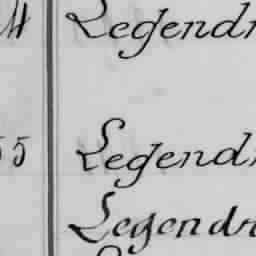 Legendr
55 Legendr
Legendr